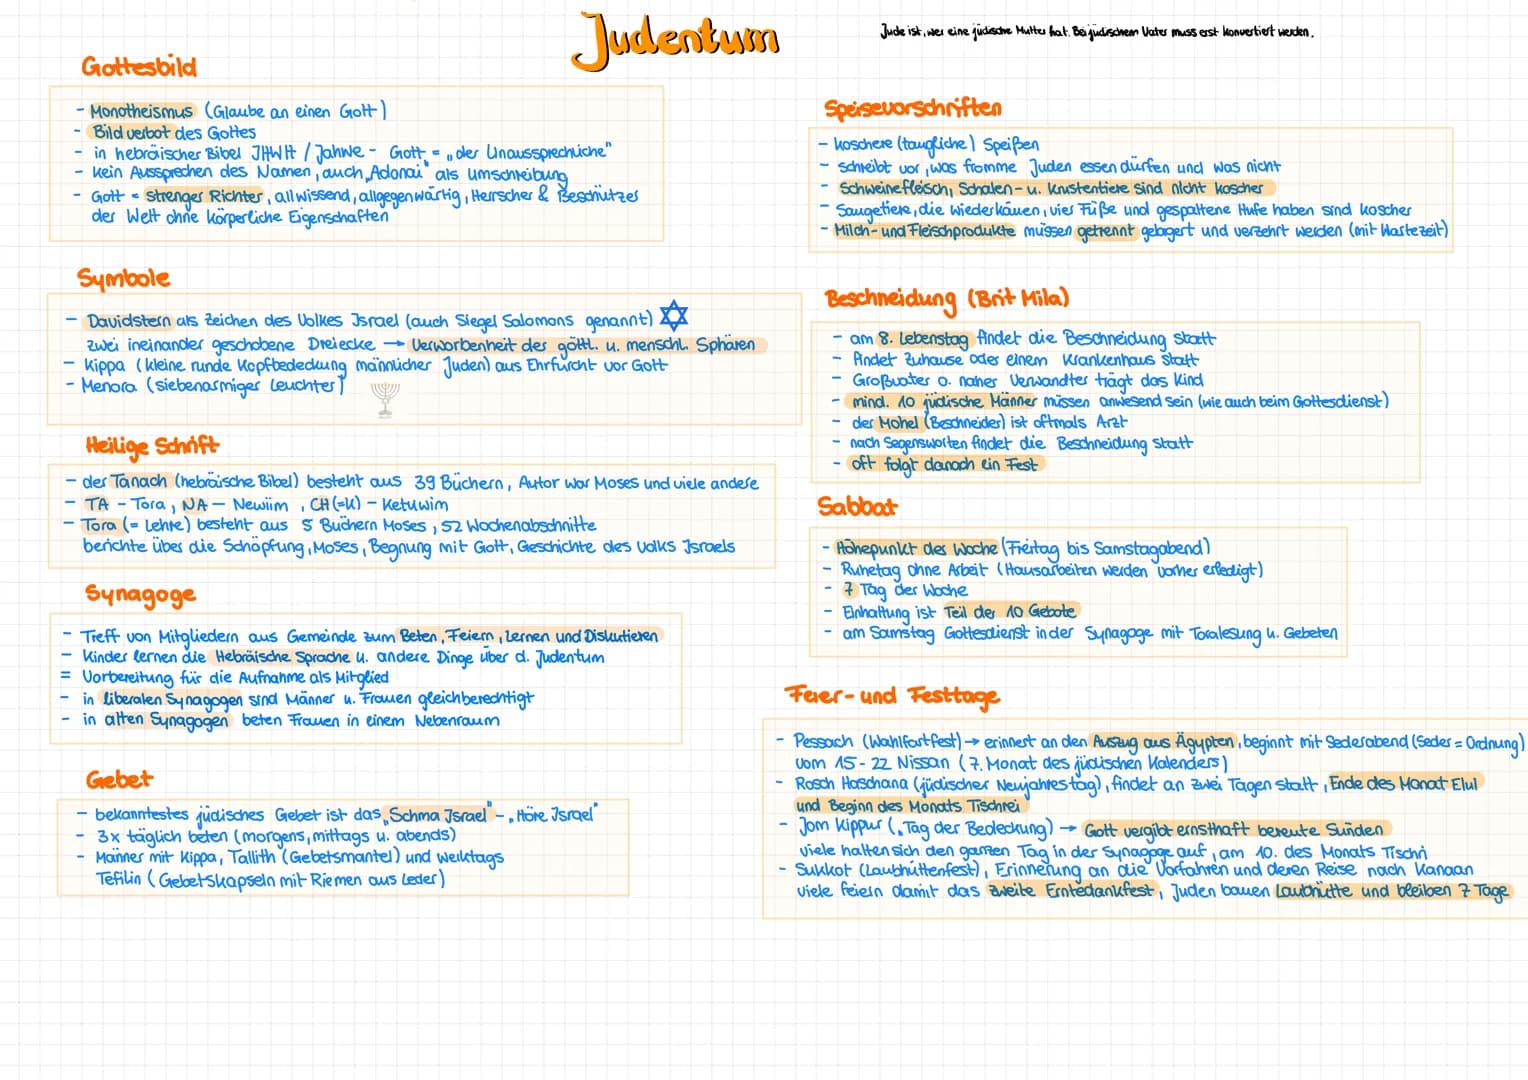 Judentum
Jude ist, wer eine jüdische Mutter hat. Bei jüdischem Vater muss erst konvertiert werden.
Gottesbild
- Monotheismus (Glaube an einen Gott)
- Bildverbot des Gottes
- in hebräischer Bibel JHWH / Jahwe - Gott = „der Unaussprechliche"
- kein Aussprechen des Namen, auch „Adonai" als Umschreibung
- Gott = strenger Richter, allwissend, allgegenwärtig, Herrscher & Beschützer
der Welt ohne körperliche Eigenschaften
Symbole
- Davidstern als Zeichen des Volkes Israel (auch Siegel Salomons genannt)
zwei ineinander geschobene Dreiecke → Verworbenheit der göttl. u. menschl. Sphären
- Kippa (kleine runde Kopfbedeckung männlicher Juden) aus Ehrfurcht vor Gott
- Menora (siebenarmiger Leuchter)
Heilige Schrift
- der Tanach (hebräische Bibel) besteht aus 39 Büchern, Autor war Moses und viele andere
- TA - Tora, NA - Newiim, CH (=K) - Ketuwim
- Tora (= Lehre) besteht aus 5 Büchern Moses, 52 Wochenabschnitte
berichte über die Schöpfung, Moses, Begnung mit Gott, Geschichte des Volks Israels
Synagoge
- Treff von Mitgliedern aus Gemeinde zum Beten, Feiern, Lernen und Diskutieren
- Kinder lernen die Hebräische Sprache u. andere Dinge über d. Judentum
= Vorbereitung für die Aufnahme als Mitglied
- in liberalen Synagogen sind Männer u. Frauen gleichberechtigt
- in alten Synagogen beten Frauen in einem Nebenraum
Gebet
- bekanntestes jüdisches Gebet ist das „Schma Israel" - „Höre Israel"
- 3x täglich beten (morgens, mittags u. abends)
- Männer mit Kippa, Tallith (Gebetsmantel) und werktags
Tefilin (Gebetskapseln mit Riemen aus Leder)
Speisevorschriften
- koschere (taugliche) Speißen
- schreibt vor, was fromme Juden essen dürfen und was nicht
- Schweinefleisch, Schalen- u. Krustentiere sind nicht koscher
- Säugetiere, die wiederkäuen, vier Füße und gespaltene Hufe haben sind koscher
- Milch- und Fleischprodukte müssen getrennt gelagert und verzehrt werden (mit Wartezeit)
Beschneidung (Brit Mila)
- am 8. Lebenstag findet die Beschneidung statt
- findet Zuhause oder einem Krankenhaus statt
- Großvater o. naher Verwandter trägt das Kind
- mind. 10 jüdische Männer müssen anwesend sein (wie auch beim Gottesdienst)
- der Mohel (Beschneider) ist oftmals Arzt
- nach Segensworten findet die Beschneidung statt
- oft folgt danach ein Fest
Sabbat
- Höhepunkt der Woche (Freitag bis Samstagabend)
- Ruhetag ohne Arbeit (Hausarbeiten werden vorher erledigt)
- 7 Tag der Woche
- Einhaltung ist Teil der 10 Gebote
- am Samstag Gottesdienst in der Synagoge mit Toralesung u. Gebeten
Feier- und Festtage
- Pessach (Wahlfartfest) → erinnert an den Auszug aus Ägypten, beginnt mit Sederabend (Seder = Ordnung)
vom 15 - 22 Nissan (7. Monat des jüdischen Kalenders)
- Rosch Haschana (jüdischer Neujahrestag), findet an zwei Tagen statt, Ende des Monat Elul
und Beginn des Monats Tischrei
- Jom Kippur („Tag der Bedeckung) → Gott vergibt ernsthaft bereute Sünden
viele halten sich den ganzen Tag in der Synagoge auf, am 10. des Monats Tischri
- Sukkot (Laubhüttenfest), Erinnerung an die Vorfahren und deren Reise nach Kanaan
viele feiern damit das zweite Erntedankfest, Juden bauen Laubhütte und bleiben 7 Tage